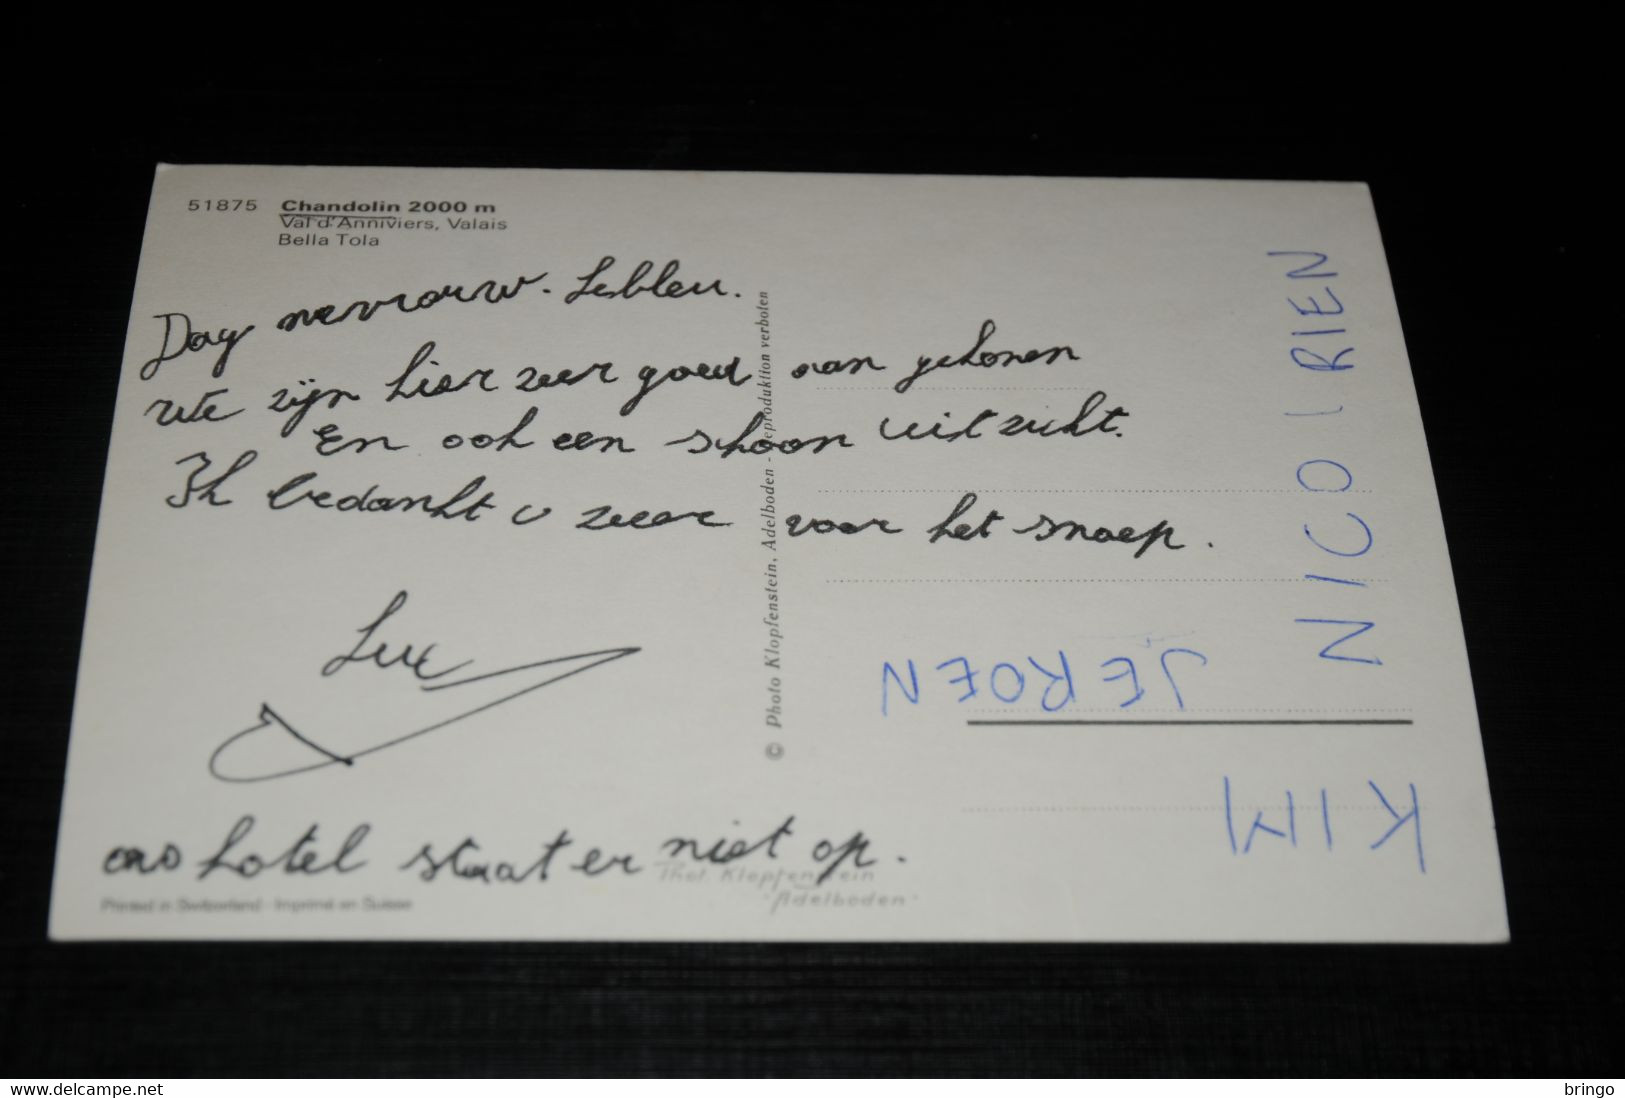 51875 Chandolin 2000 m
Val d'Anniviers, Valais
Bella Tola
Dag mevrouw. Lebleu.
We zijn hier zeer goed aan gekomen
En ook een schoon uitzicht.
Ik bedankt u zeer voor het snoep.
Luc
ons hotel staat er niet op.
Printed in Switzerland - Imprimé en Suisse
Phot. Klopfenstein
Adelboden
© Photo Klopfenstein, Adelboden - Reproduktion verboten
NICO | RIEN
JEROEN
KIM
delcampe.net
bringo